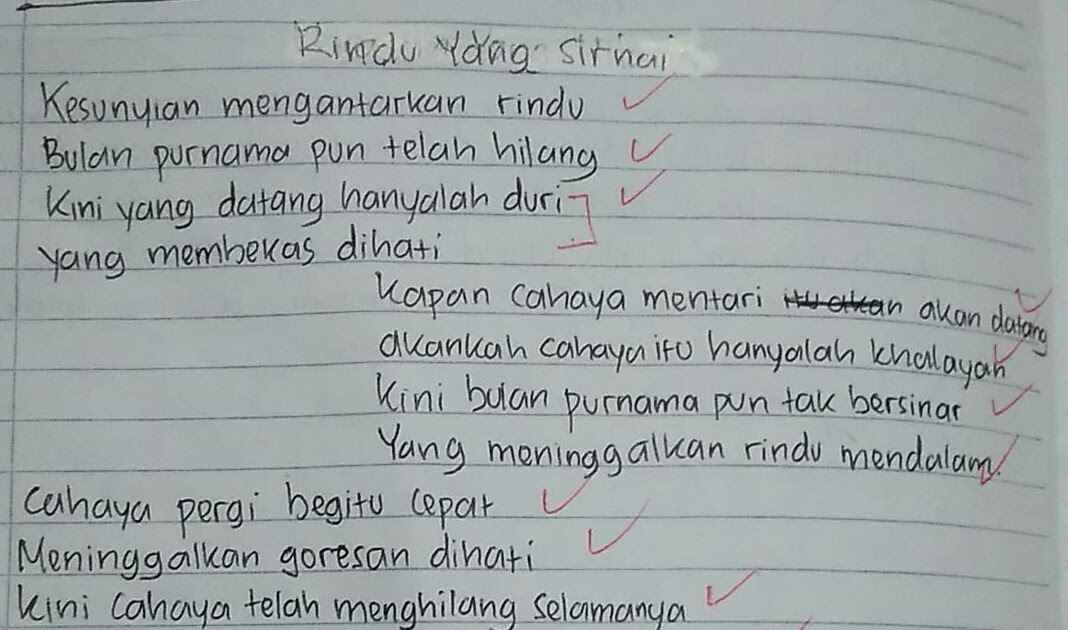 Rindu yang sirnai
Kesunyian mengantarkan rindu
Bulan purnama pun telah hilang
Kini yang datang hanyalah duri
yang membekas dihati
Kapan cahaya mentari itu akan akan datang
akankah cahaya itu hanyalah khalayah
Kini bulan purnama pun tak bersinar
Yang meninggalkan rindu mendalam.
Cahaya pergi begitu cepat
Meninggalkan goresan dihati
Kini cahaya telah menghilang selamanya